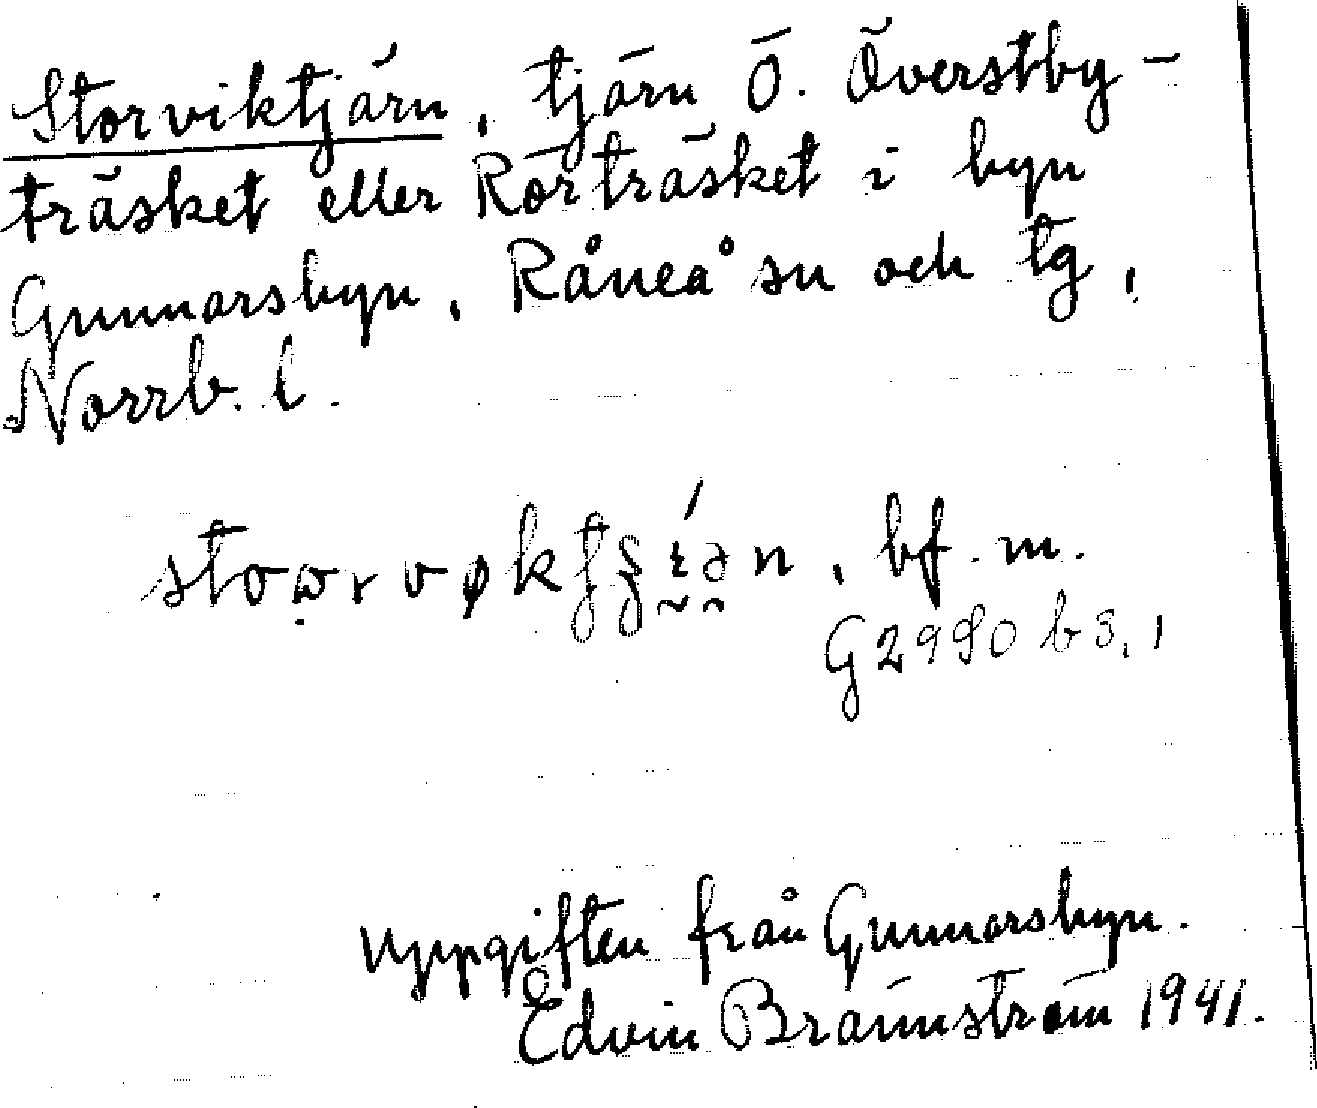 Storviktjärn, tjärn Ö. Överstby-
träsket eller Rörträsket i byn
Gunnarsbyn, Råneå sn och tg,
Norrb. l.
bf. m.
G 2980 b 3, 1
uppgiften från Gunnarsbyn.
Edvin Brännström 1941.